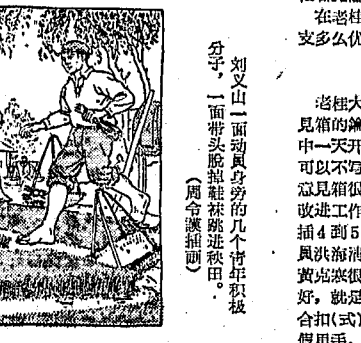 刘义山一面动員身旁的几个青年积极
分子，一面带头脫掉鞋袜跳进秧田。
（周令謨插画）
在老桂
支多么优
老桂大
見箱的編
中一天开
可以不写
意見箱很
改进工作
插4到5
員洪海
黄克寒很
好，就是
合扣(式)
假甩手，